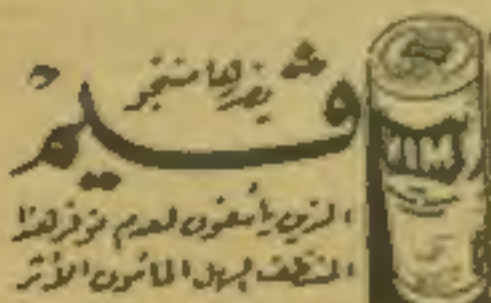 يعتذر لها منتجو
ڤيم
الذين يأسفون لعدم توفر هذا
المنظف السهل المأمون الأثر
VIM